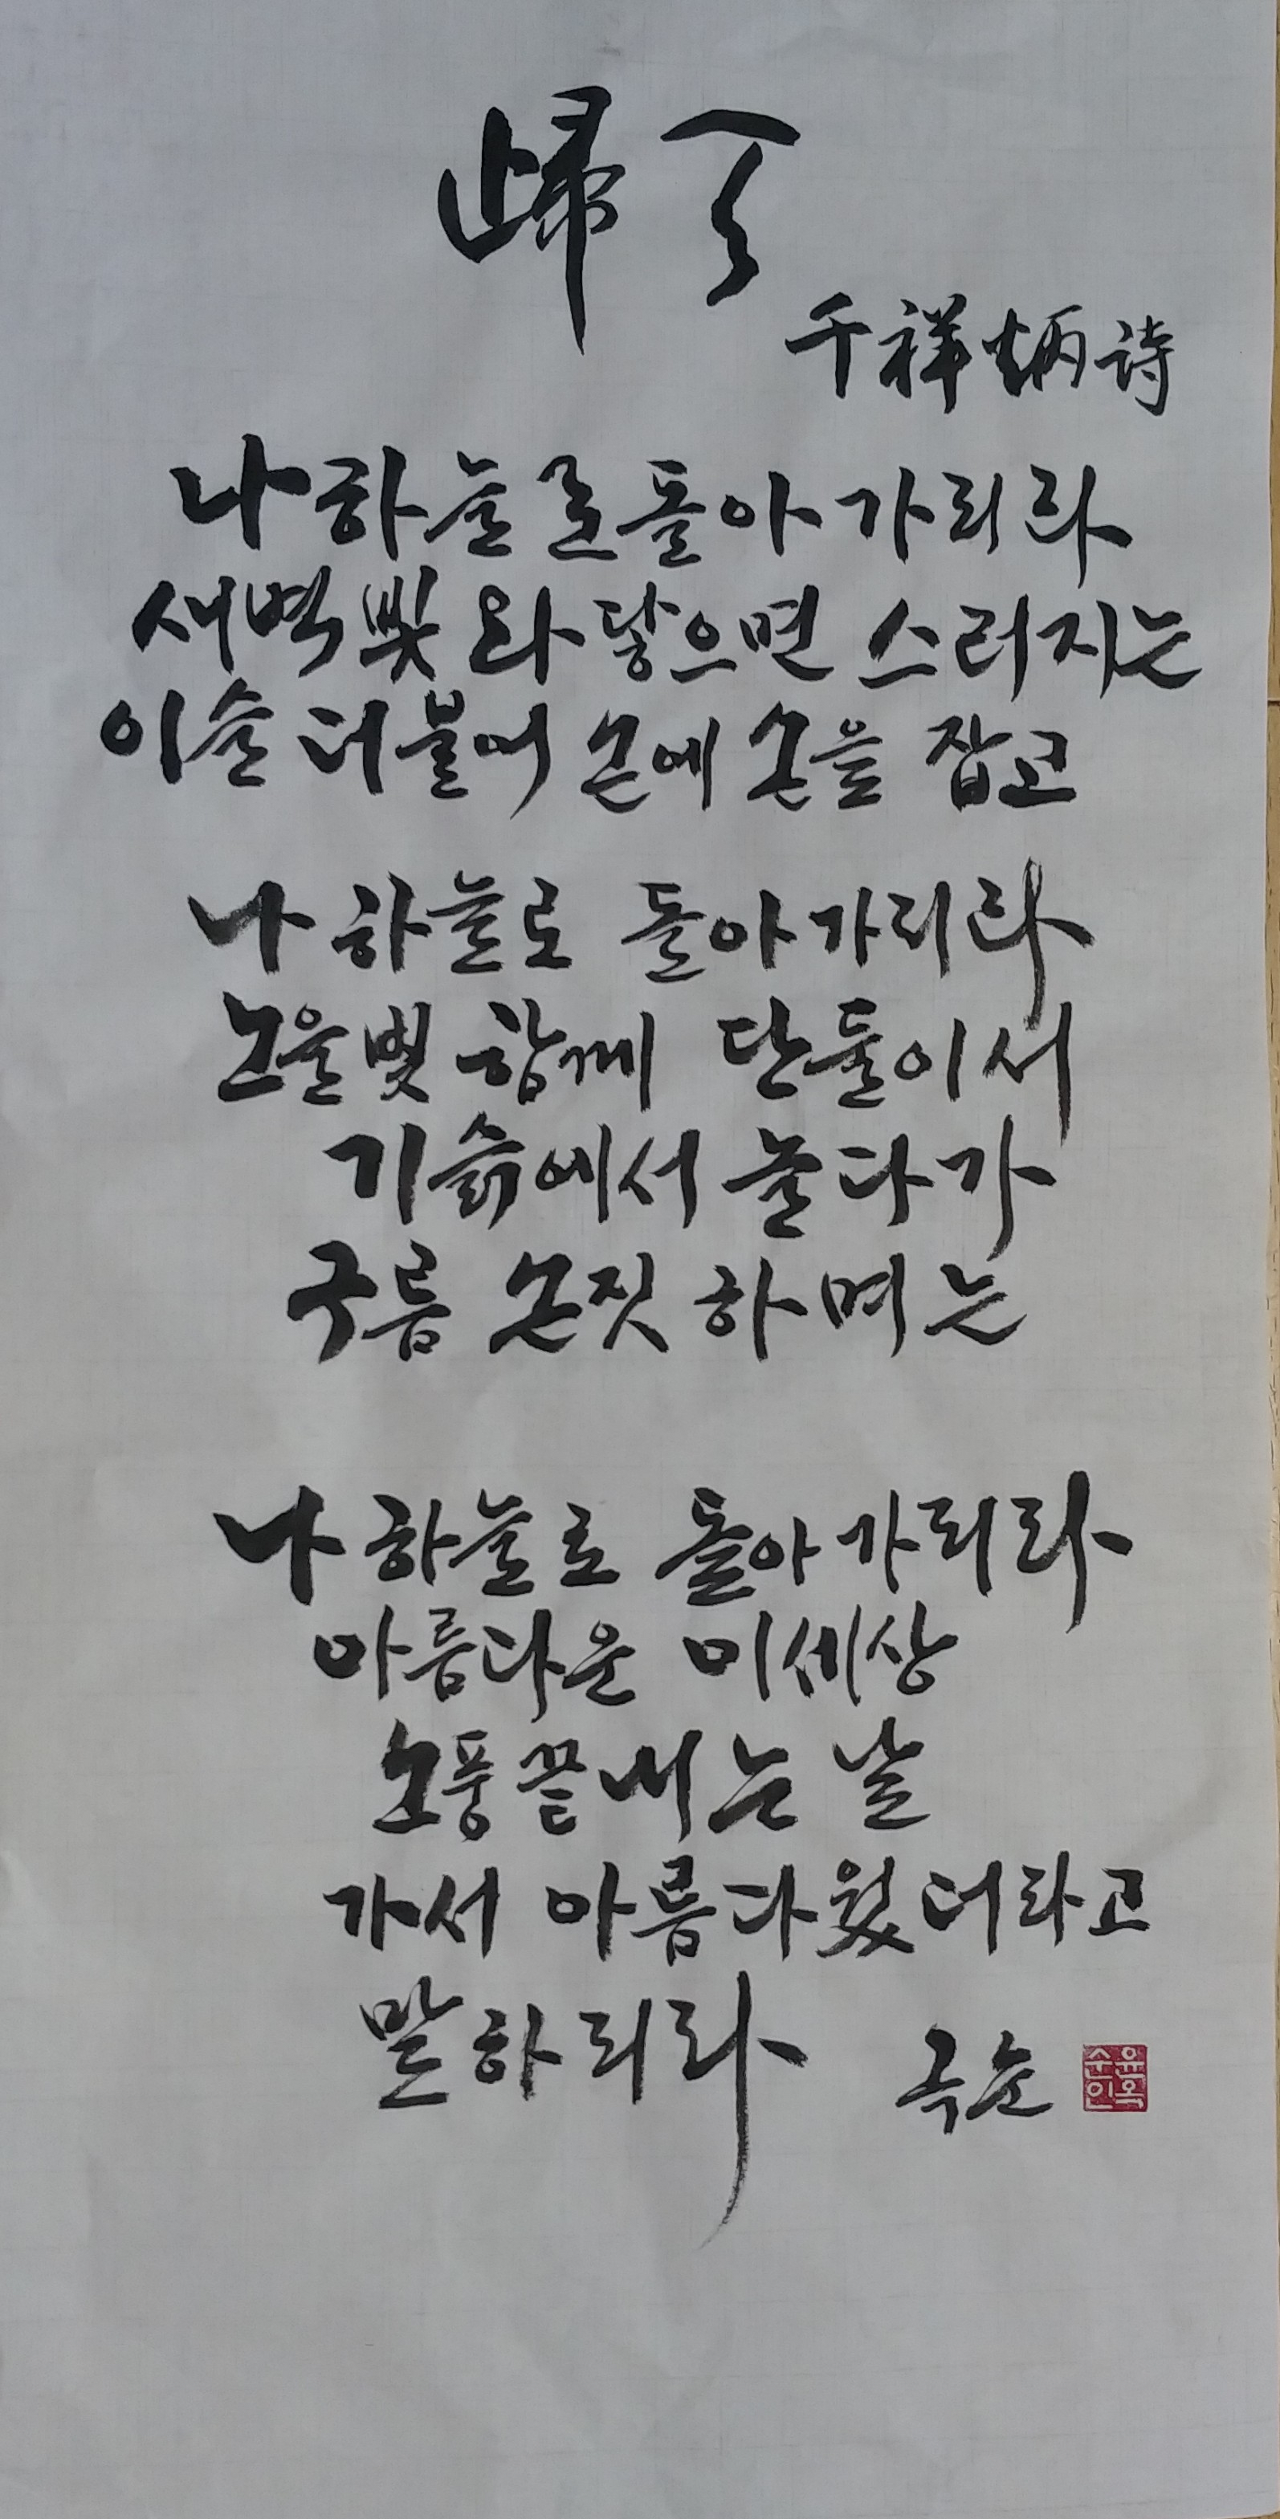 歸天
千祥炳詩
나 하늘로 돌아가리라
새벽빛 와 닿으면 스러지는
이슬 더불어 손에 손을 잡고
나 하늘로 돌아가리라
노을빛 함께 단둘이서
기슭에서 놀다가
구름 손짓 하며는
나 하늘로 돌아가리라
아름다운 이세상
소풍 끝내는 날
가서 아름다웠더라고
말하리라